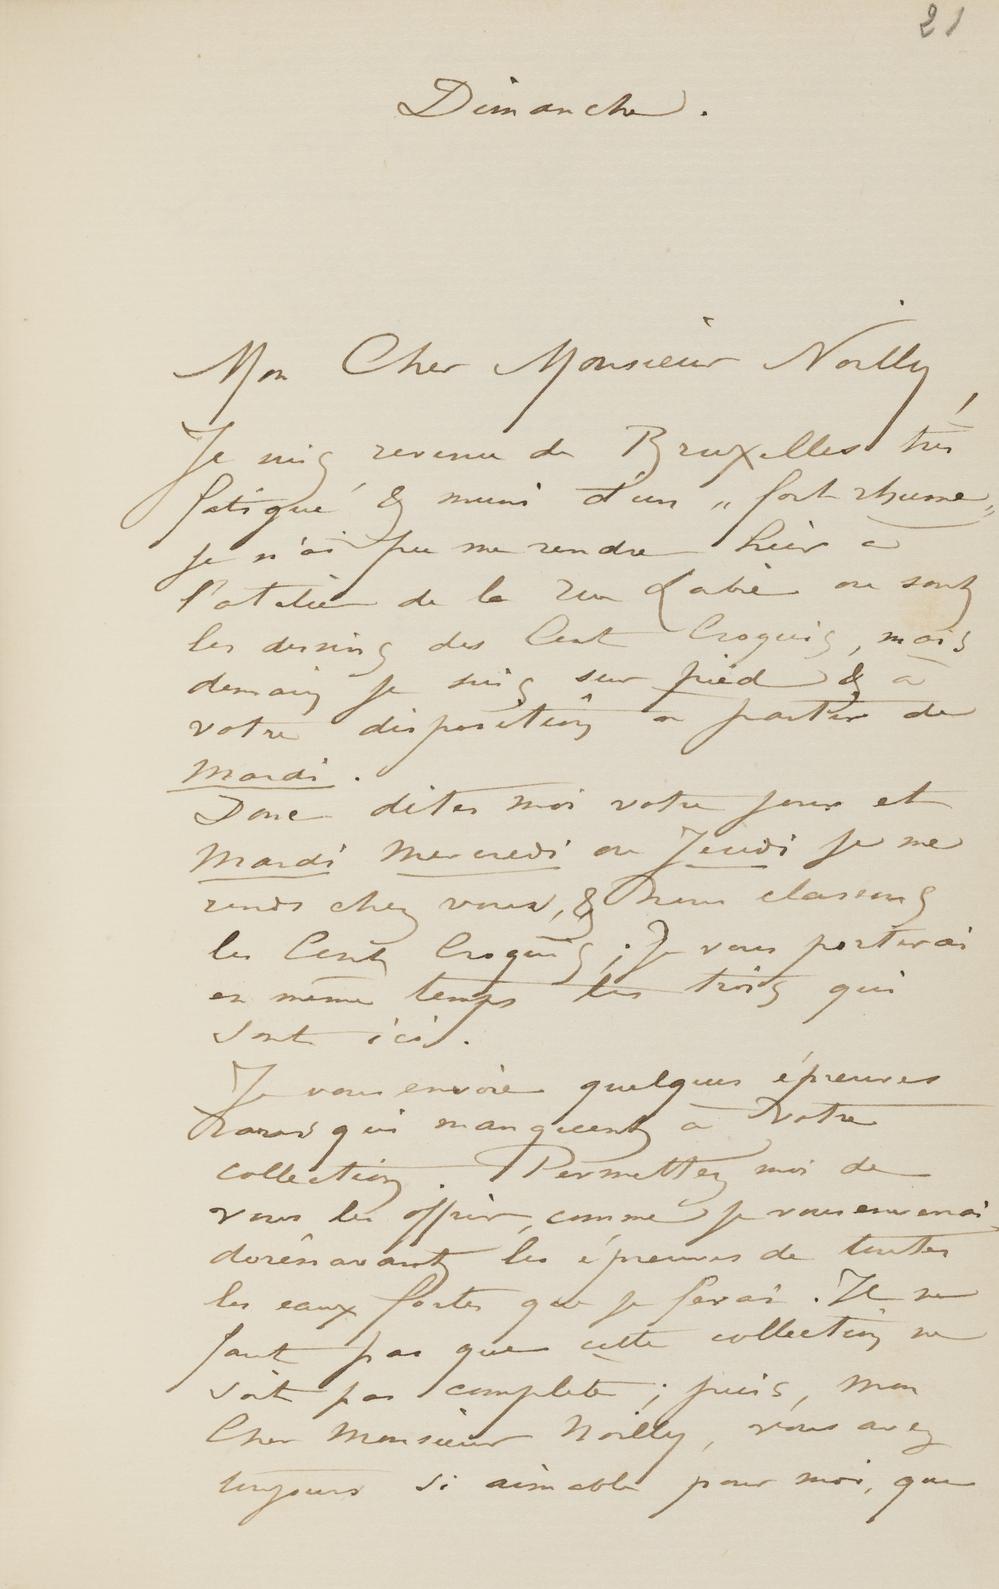 21
Dimanche.
Mon Cher Monsieur Noilly,
Je suis revenu de Bruxelles très
fatigué & muni d'un „ fort rhume „
je n'ai pu me rendre hier à
l'atelier de la rue Labie ou sont
les dessins des Cent Croquis, mais
demain je suis sur pied & à
votre disposition a partir de
Mardi.
Donc dites moi votre jour et
Mardi Mercredi ou Jeudi je me
rends chez vous, & nous classons
les Cent Croquis ; Je vous porterai
en même temps les trois qui
sont ici.
Je vous envoie quelques épreuves
rares qui manquent à votre
collection. Permettez moi de
vous les offrir, comme je vous enverrai
dorênavant les épreuves de toutes
les eaux fortes que je ferai. Il ne
faut pas que cette collection ne
soit pas complete ; puis, mon
Cher Monsieur Noilly, vous avez
toujours si aimable pour moi, que